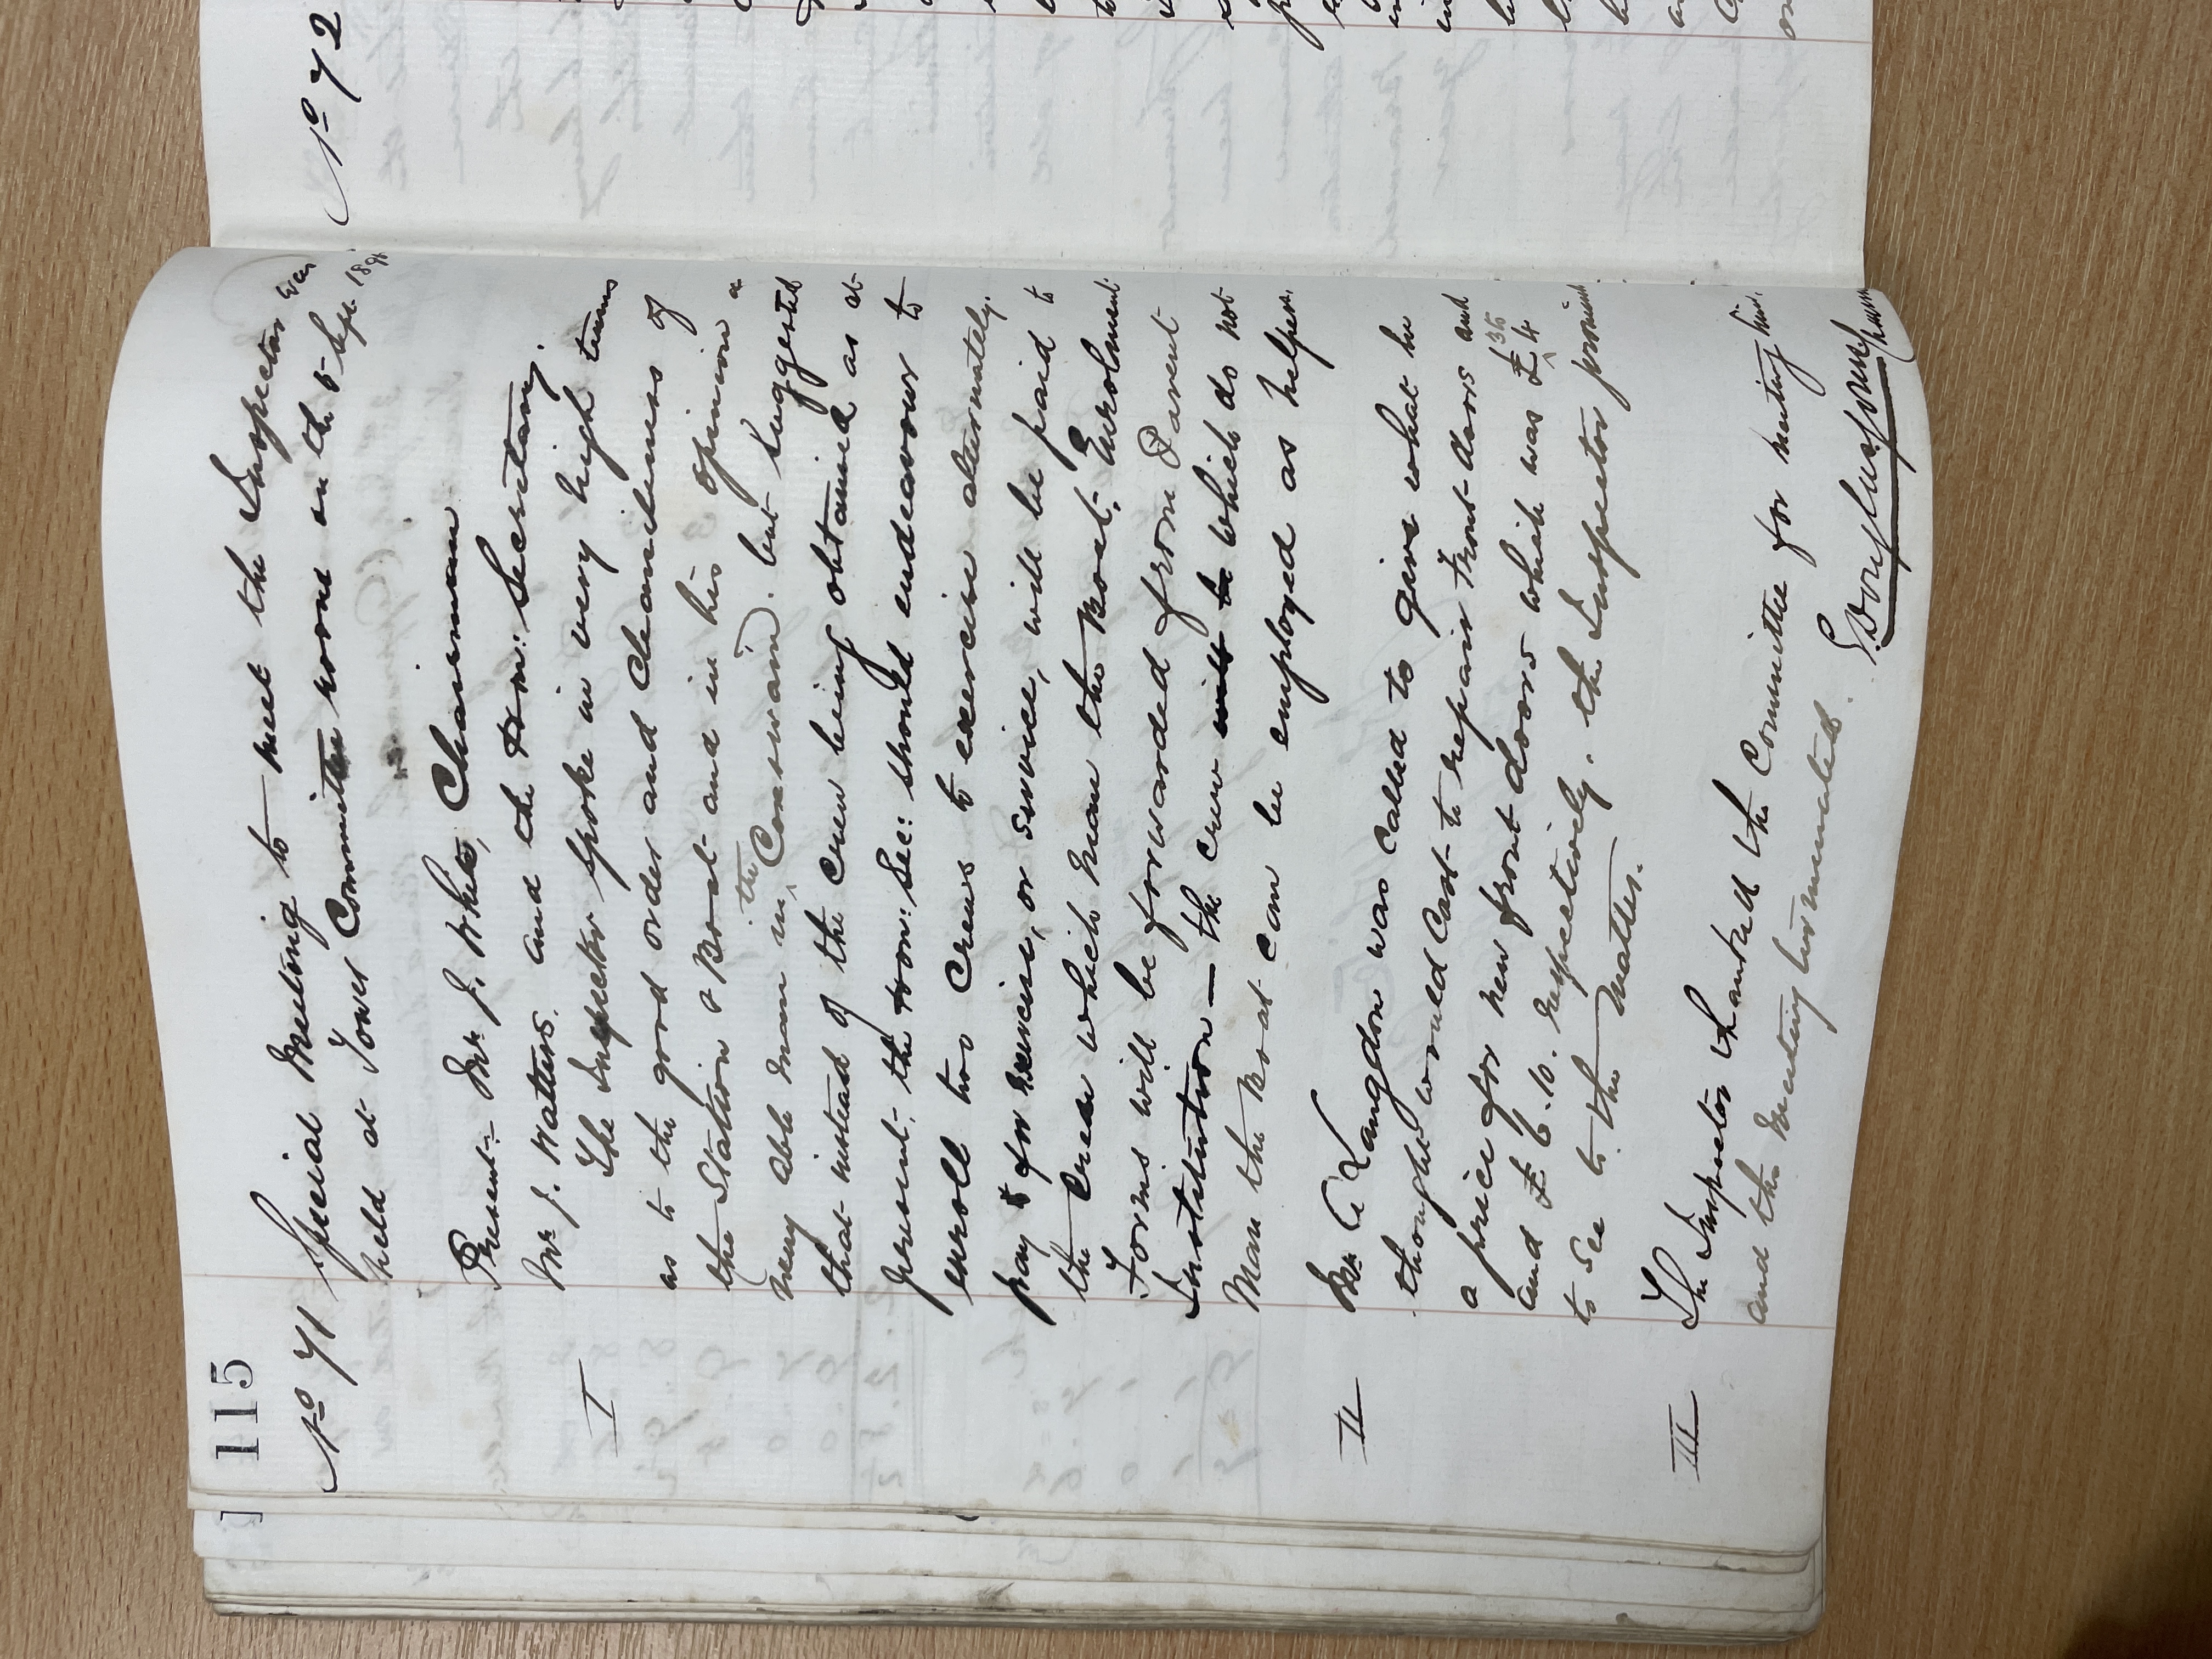 115
No 71 Special Meeting to meet the Inspector was
held at Tower Committee room on the 5 Sep. 189
Present:- Mr J. White, Chairman
Mr J. Watters. and the Hon: Secretary.
I The Inspector spoke in very high terms
as to the good order and Cleanliness of
the Station & Boat and in his opinion a
very able man in the Coxswain. but suggested
that instead of the Crew being obtained as at
present, the Hon: Sec: should endeavour to
enroll two Crews to exercise alternately.
pay & for Exercise, or service, will be paid to
the Crew which man the Boat. Enrolment
Forms will be forwarded from Parent
Institution — the crew will be which do not
Man the Boat can be employed as helpers.
II Mr C Langdon was called to give what he
thought would Cost to repair front doors and
a price for new front doors which was £4 35
and £6.10. respectively. the Inspector promised
to see to the Matter.
III The Inspector thanked the Committee for meeting him.
and the Meeting terminated.
Chairman
No 72